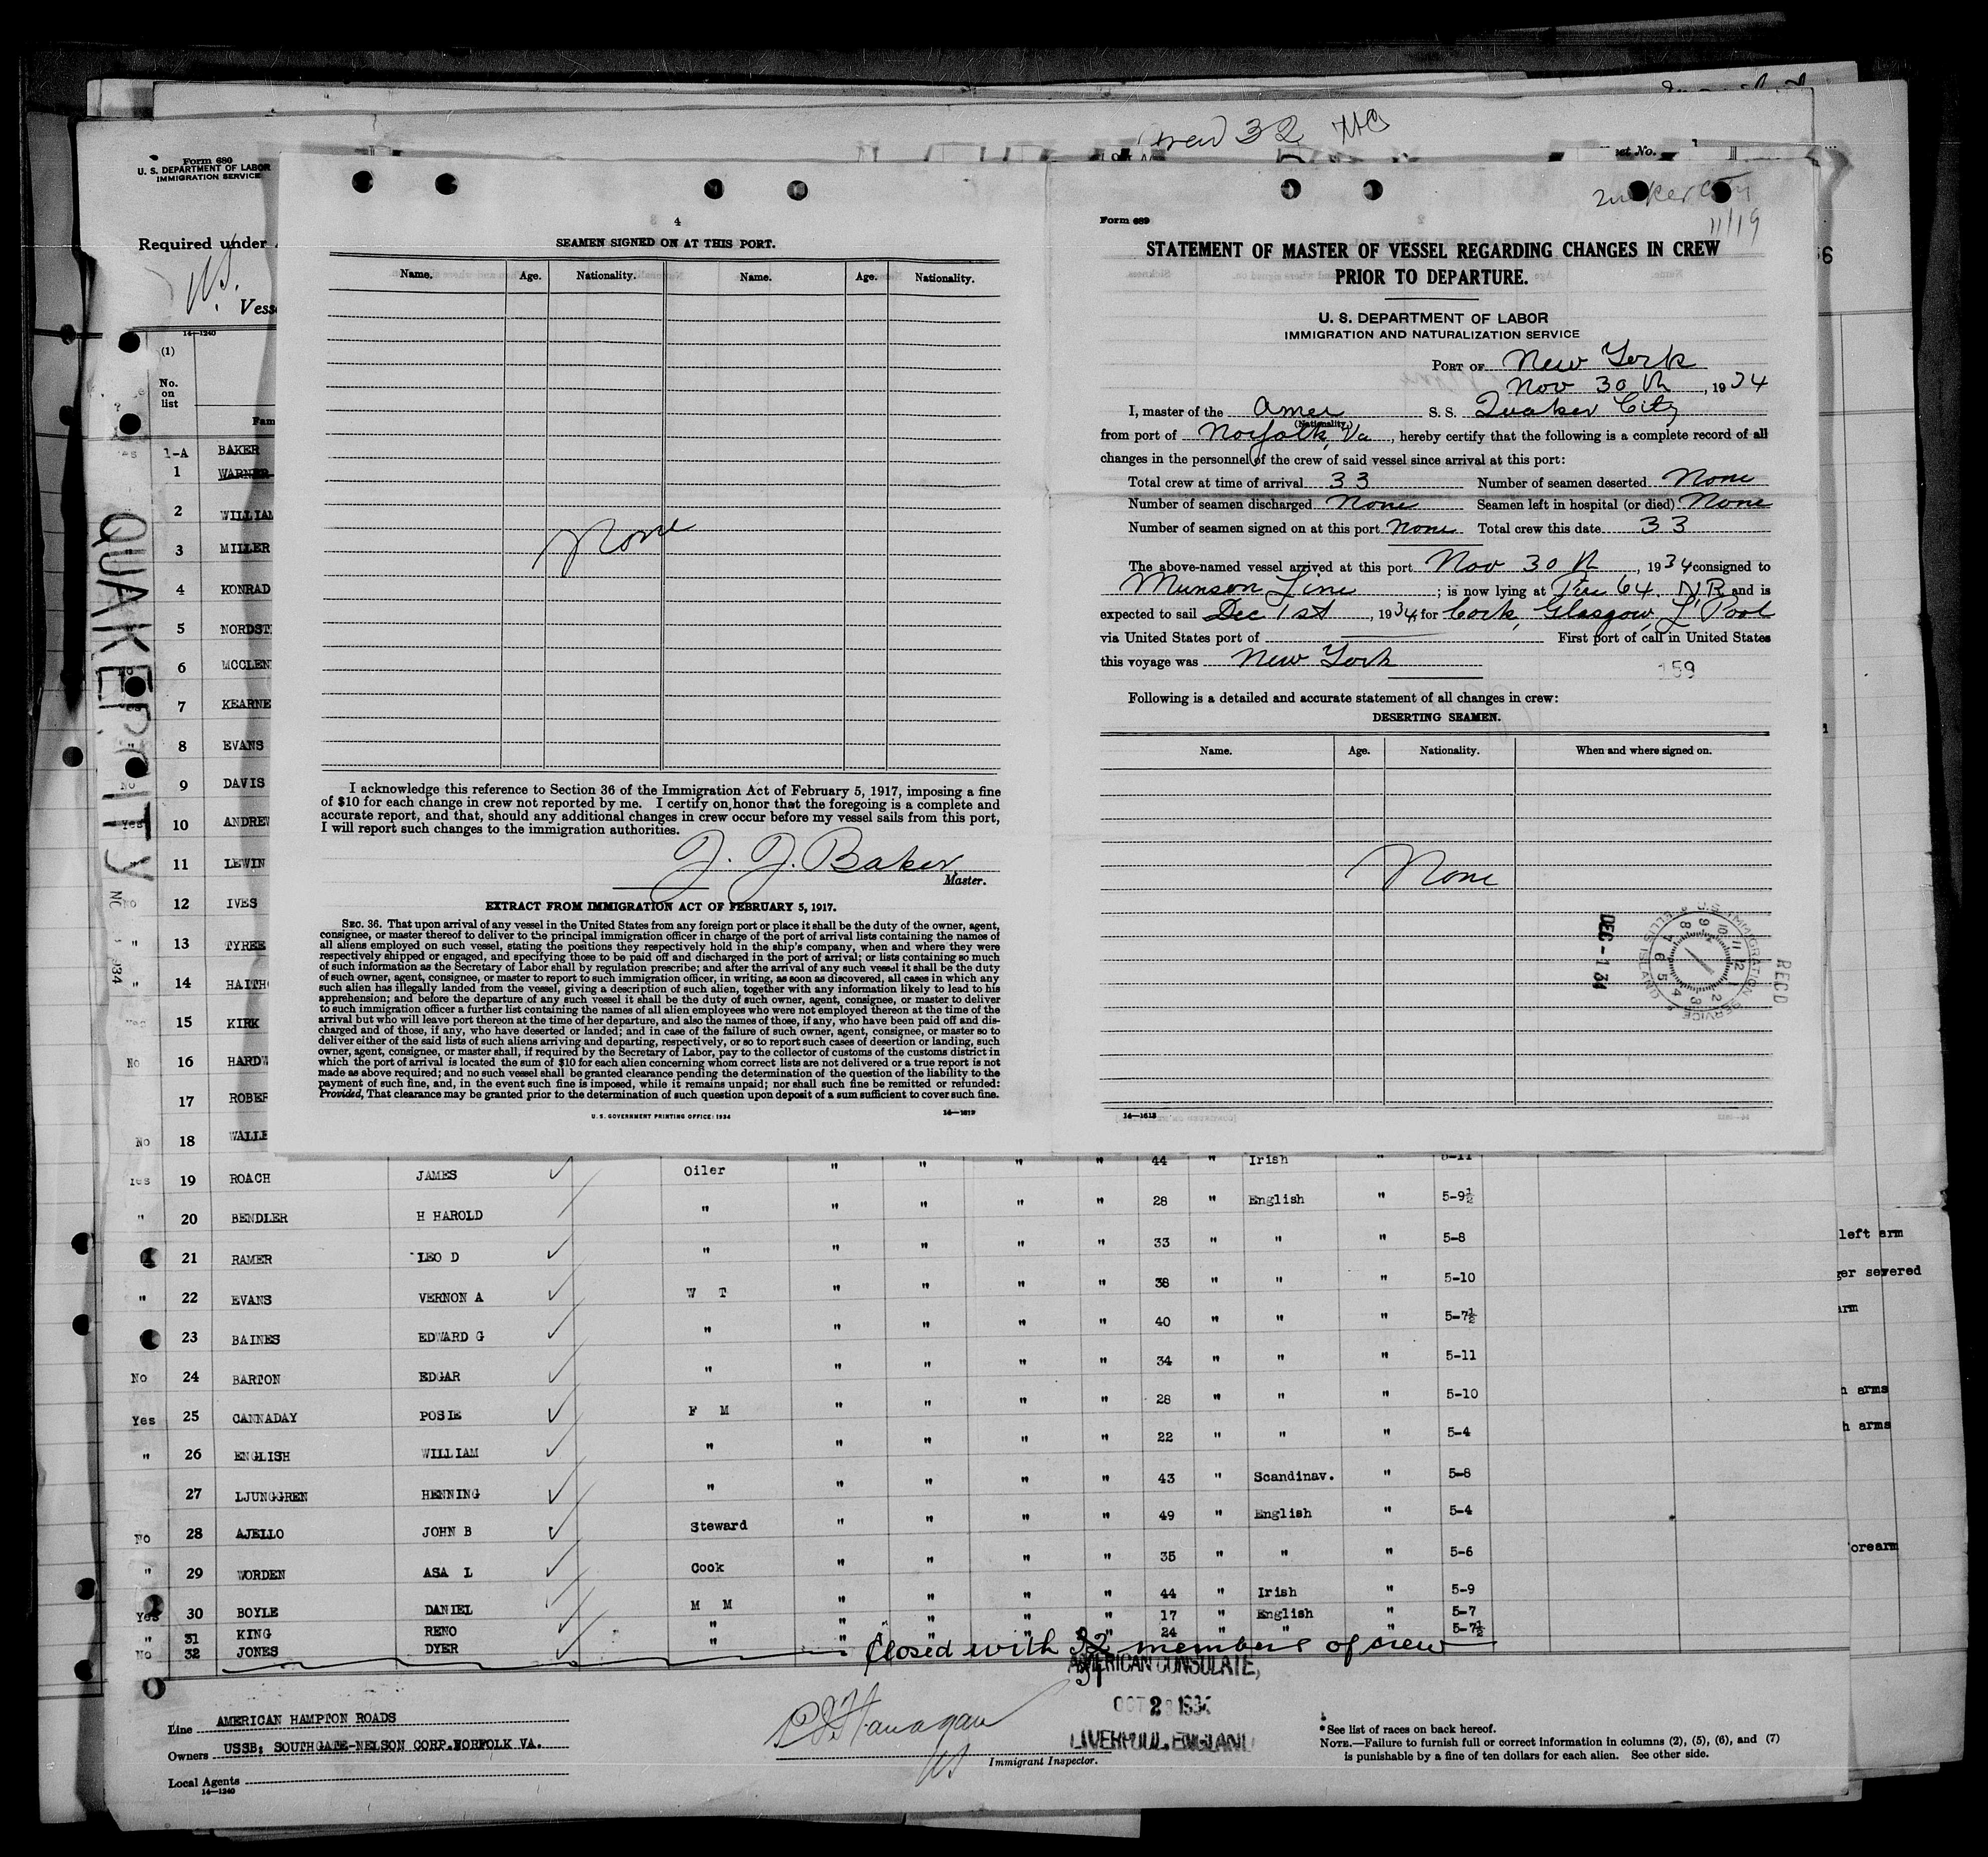 Crew 32
Form 680
U. S. DEPARTMENT OF LABOR
IMMIGRATION SERVICE
Required under
Vess
14—1240
(1)
No.
on
list
Fam
QUAKER CITY
1-A BAKER
1 WARNER
2 WILLIAM
3 MILLER
4 KONRAD
5 NORDST
6 MCCLEN
7 KEARNE
8 EVANS
No 9 DAVIS
Yes 10 ANDREW
" 11 LEWIN
No 12 IVES
" 13 TYREE
" 14 HAITH
Yes 15 KIRK
No 16 HARDW
17 ROBER
No 18 WALLE
4
SEAMEN SIGNED ON AT THIS PORT.
Name. Age. Nationality. Name. Age. Nationality.
None
I acknowledge this reference to Section 36 of the Immigration Act of February 5, 1917, imposing a fine
of $10 for each change in crew not reported by me. I certify on honor that the foregoing is a complete and
accurate report, and that, should any additional changes in crew occur before my vessel sails from this port,
I will report such changes to the immigration authorities.
J. J. Baker
Master.
EXTRACT FROM IMMIGRATION ACT OF FEBRUARY 5, 1917.
SEC. 36. That upon arrival of any vessel in the United States from any foreign port or place it shall be the duty of the owner, agent,
consignee, or master thereof to deliver to the principal immigration officer in charge of the port of arrival lists containing the names of
all aliens employed on such vessel, stating the positions they respectively hold in the ship's company, when and where they were
respectively shipped or engaged, and specifying those to be paid off and discharged in the port of arrival; or lists containing so much
of such information as the Secretary of Labor shall by regulation prescribe; and after the arrival of any such vessel it shall be the duty
of such owner, agent, consignee, or master to report to such immigration officer, in writing, as soon as discovered, all cases in which any
such alien has illegally landed from the vessel, giving a description of such alien, together with any information likely to lead to his
apprehension; and before the departure of any such vessel it shall be the duty of such owner, agent, consignee, or master to deliver
to such immigration officer a further list containing the names of all alien employees who were not employed thereon at the time of the
arrival but who will leave port thereon at the time of her departure, and also the names of those, if any, who have been paid off and dis-
charged and of those, if any, who have deserted or landed; and in case of the failure of such owner, agent, consignee, or master so to
deliver either of the said lists of such aliens arriving and departing, respectively, or so to report such cases of desertion or landing, such
owner, agent, consignee, or master shall, if required by the Secretary of Labor, pay to the collector of customs of the customs district in
which the port of arrival is located the sum of $10 for each alien concerning whom correct lists are not delivered or a true report is not
made as above required; and no such vessel shall be granted clearance pending the determination of the question of the liability to the
payment of such fine, and, in the event such fine is imposed, while it remains unpaid; nor shall such fine be remitted or refunded:
Provided, That clearance may be granted prior to the determination of such question upon deposit of a sum sufficient to cover such fine.
U. S. GOVERNMENT PRINTING OFFICE: 1934 14—1613
11/19
Form 689
STATEMENT OF MASTER OF VESSEL REGARDING CHANGES IN CREW
PRIOR TO DEPARTURE.
U. S. DEPARTMENT OF LABOR
IMMIGRATION AND NATURALIZATION SERVICE
PORT OF New York
Nov 30 th, 1934
I, master of the Amer S. S. Quaker City
(Nationality)
from port of Norfolk, Va, hereby certify that the following is a complete record of all
changes in the personnel of the crew of said vessel since arrival at this port:
Total crew at time of arrival 33 Number of seamen deserted None
Number of seamen discharged None Seamen left in hospital (or died) None
Number of seamen signed on at this port None Total crew this date 33
The above-named vessel arrived at this port Nov 30 th, 1934 consigned to
Munson Line; is now lying at Pier 64. N.R. and is
expected to sail Dec 1st, 1934, for Cork, Glasgow, L'Pool
via United States port of First port of call in United States
this voyage was New York
159
Following is a detailed and accurate statement of all changes in crew:
DESERTING SEAMEN.
Name. Age. Nationality. When and where signed on.
None
DEC -1 34
U.S. IMMIGRATION SERVICE ELLIS ISLAND
REC'D
14—1613
Yes 19 ROACH JAMES Oiler " " " " 44 " Irish " 5-11
" 20 BENDLER H HAROLD " " " " " 28 " English " 5-9½
21 RAMER LEO D " " " " " 33 " " " 5-8
" 22 EVANS VERNON A W T " " " " 38 " " " 5-10
23 BAINES EDWARD G " " " " " 40 " " " 5-7½
No 24 BARTON EDGAR " " " " " 34 " " " 5-11
Yes 25 CANNADAY POSIE F M " " " " 28 " " " 5-10
" 26 ENGLISH WILLIAM " " " " " 22 " " " 5-4
27 LJUNGGREN HENNING " " " " " 43 " Scandinav. " 5-8
No 28 AJELLO JOHN B Steward " " " " 49 " English " 5-4
" 29 WORDEN ASA L Cook " " " " 35 " " " 5-6
Yes 30 BOYLE DANIEL M M " " " " 44 " Irish " 5-9
" 31 KING RENO " " " " " 17 " English " 5-7
No 32 JONES DYER " " " " " 24 " " " 5-7½
left arm
ger severed
arm
h arms
h arms
orearm
Closed with 32 members of crew
31
AMERICAN CONSULATE,
OCT 2
LIVERPOOL, ENGLAND
Line AMERICAN HAMPTON ROADS
Owners USSB; SOUTHGATE-NELSON CORP. NORFOLK VA.
Local Agents
14—1240
Immigrant Inspector.
*See list of races on back hereof.
NOTE.—Failure to furnish full or correct information in columns (2), (5), (6), and (7)
is punishable by a fine of ten dollars for each alien. See other side.